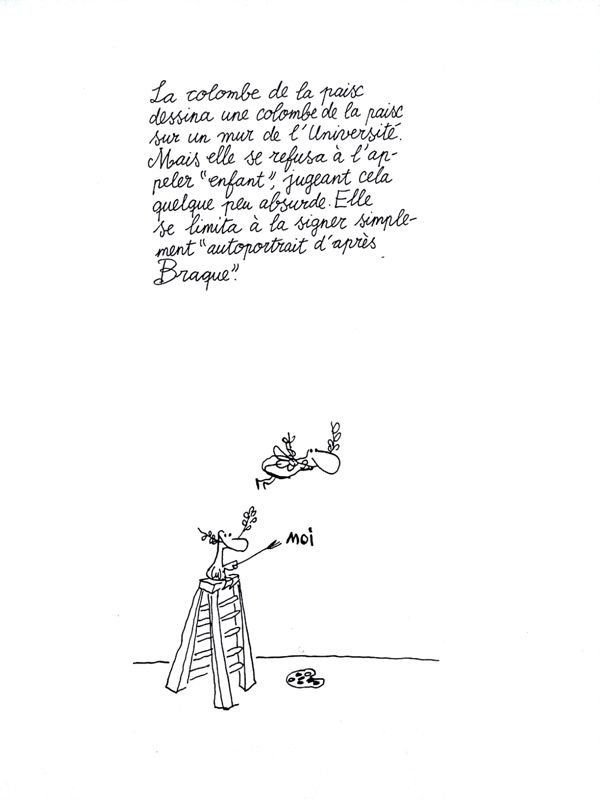 La colombe de la paix
dessina une colombe de la paix
sur un mur de l'Université.
Mais elle se refusa à l'ap-
peler "enfant", jugeant cela
quelque peu absurde. Elle
se limita à la signer simple-
ment "autoportrait d'après
Braque".
MOI